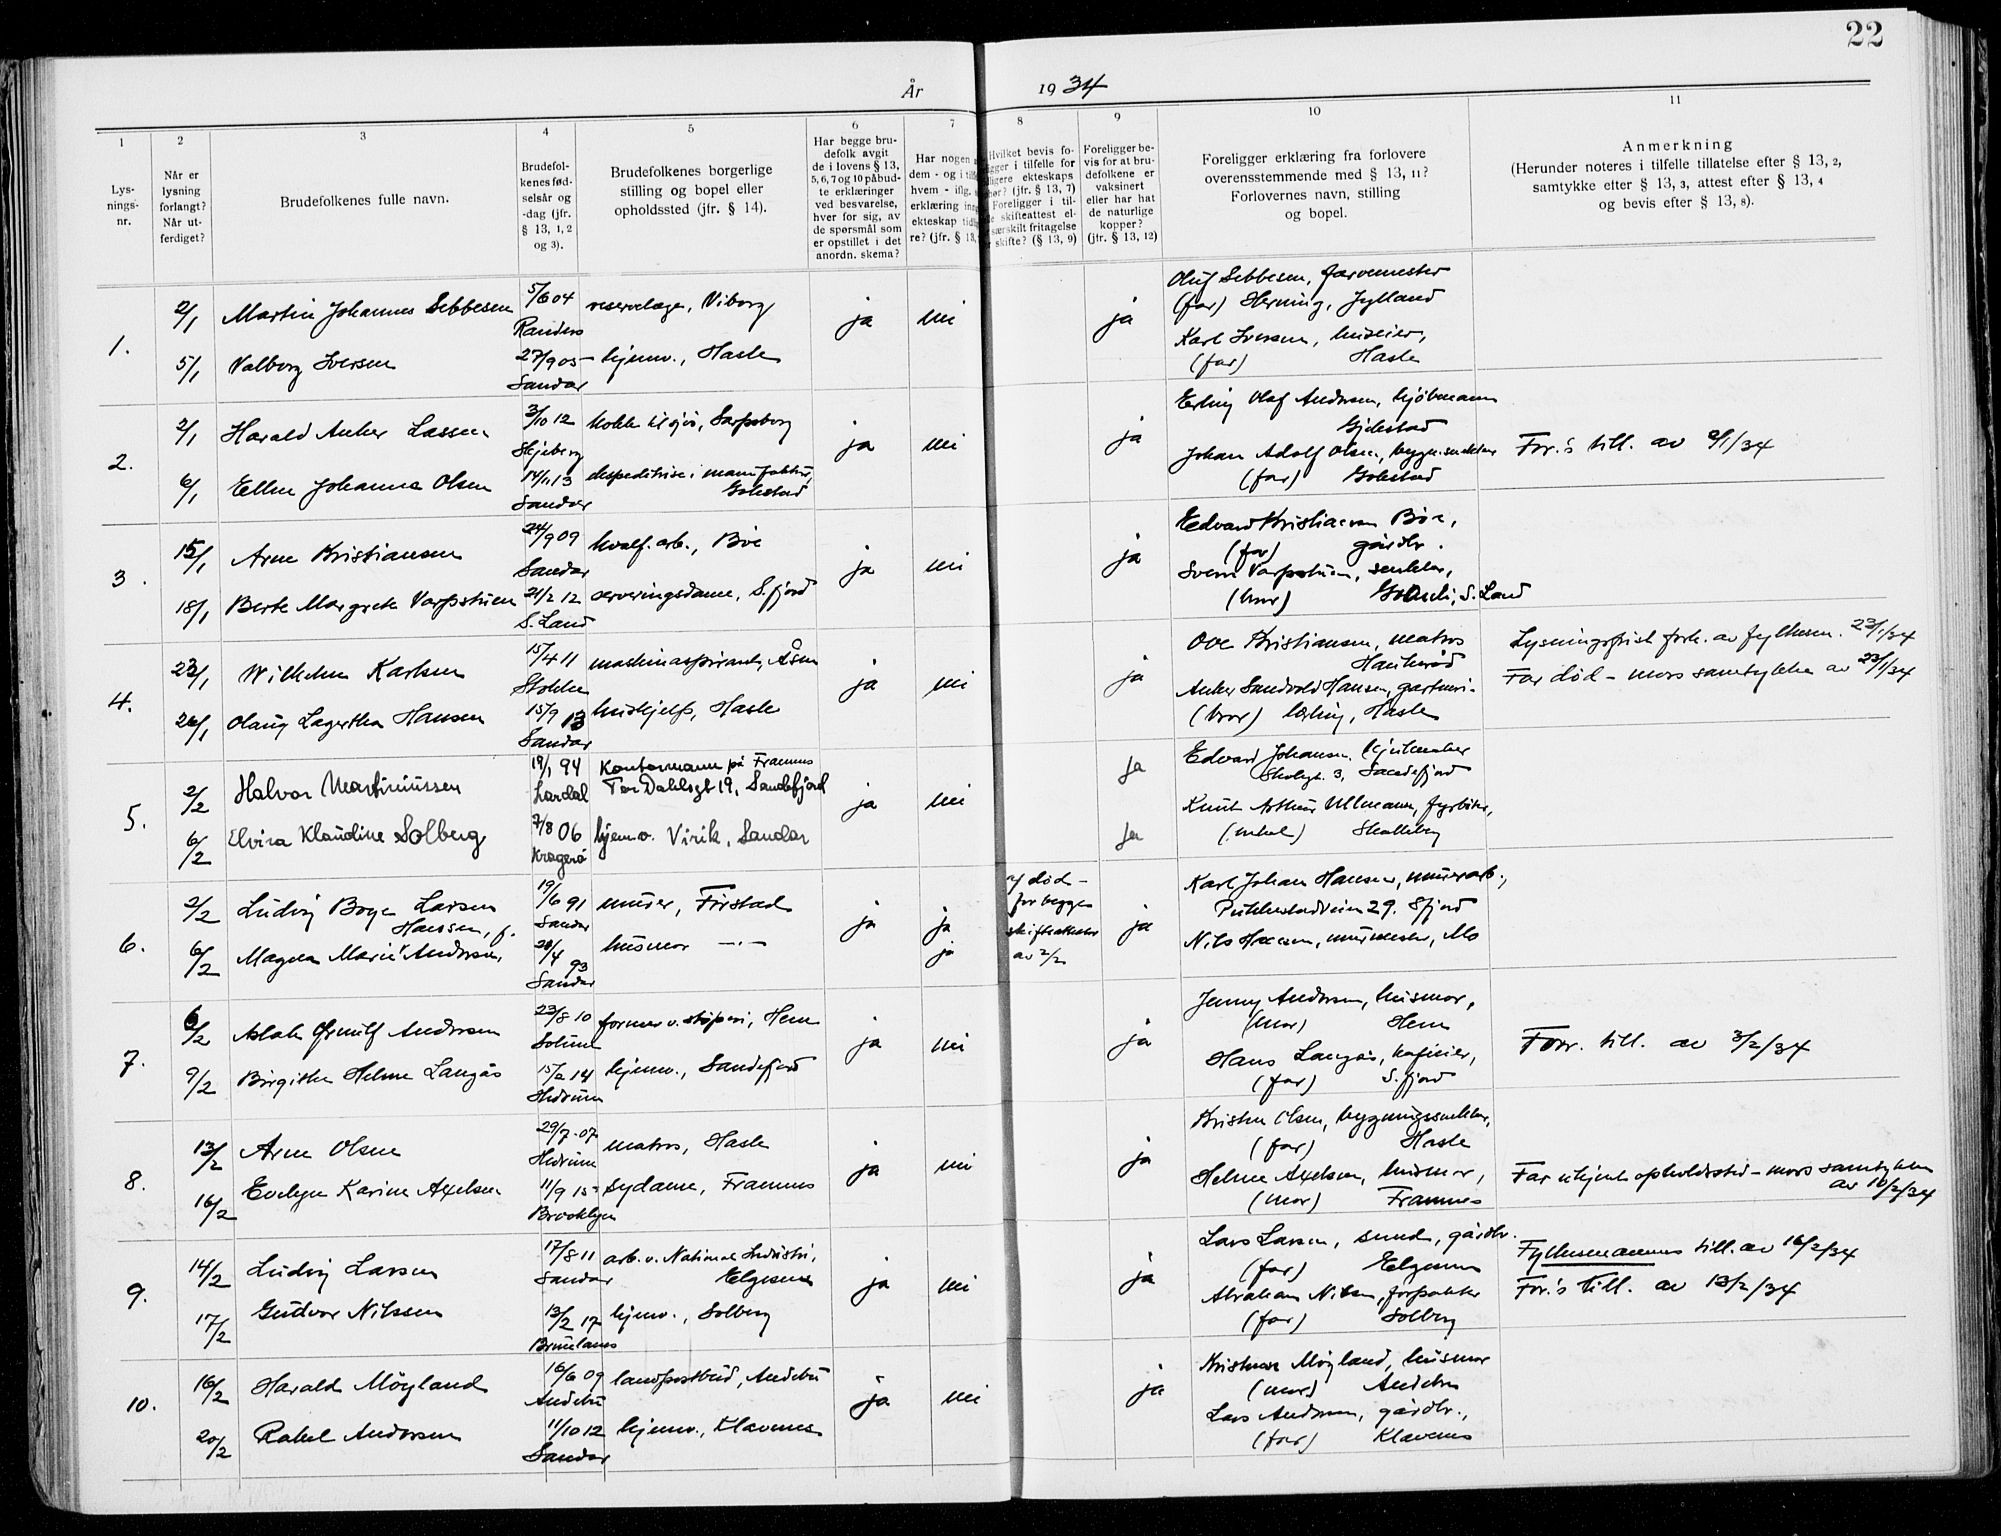 22
År 1934
1
2
3
4
5
6
7
8
9
10
11
Lys-
nings-
nr.
Når er
lysning
forlangt?
Når ut-
ferdiget?
Brudefolkenes fulle navn.
Brudefol-
kenes fød-
selsår og
-dag (jfr.
§ 13, 1, 2
og 3).
Brudefolkenes borgerlige
stilling og bopel eller
opholdssted (jfr. § 14).
Har begge bru-
defolk avgit
de i lovens § 13,
5, 6, 7 og 10 påbud-
te erklæringer
ved besvarelse,
hver for sig, av
de spørsmål som
er opstillet i det
anordn. skema?
Har nogen
dem - og i
hvem - iflg.
erklæring
ekteskap
re? (jfr. § 13,
Hvilket bevis fo-
ligger i tilfelle for
ekteskaps
(jfr. § 13, 7)
Foreligger i til-
skifteattest el-
særskilt fritagelse
skifte? (§ 13, 9)
Foreligger be-
vis for at bru-
defolkene er
vaksinert
eller har hat
de naturlige
kopper?
(jfr. § 13, 12)
Foreligger erklæring fra forlovere
overensstemmende med § 13, 11?
Forlovernes navn, stilling
og bopel.
Anmerkning
(Herunder noteres i tilfelle tillatelse efter § 13, 2,
samtykke efter § 13, 3, attest efter § 13, 4
og bevis efter § 13, 8).
1.
2/1 Martin Johannes Sebbesen 5/6 04 reservelæge, Viborg ja nei ja Oluf Sebbesen, farvemester
Randers (far) Herning, Jylland
5/1 Valborg Iversen 27/9 05 hjemv., Hasle Karl Iversen, huseier,
Sandar (far) Hasle
2.
2/1 Harald Anker Lassen 3/10 12 kokk til sjøs, Sarpsborg ja nei ja Erling Olaf Andersen, kjøbmann
Skjeberg Gjekstad
6/1 Ellen Johanne Olsen 14/11 13 ekspeditrise i manufaktur, Johan Adolf Olsen, bygn.snekker For.'s till. av 2/1/34
Sandar Gokstad (far) Gokstad
3.
15/1 Arne Kristiansen 24/9 09 hvalf. arb., Bøe ja nei ja Edvard Kristiansen Bøe,
Sandar (far) gårdbr.
18/1 Berte Margrete Varpstuen 21/2 12 serveringsdame, S.fjord Svein Varpstuen, snekker,
S. Land (bror) S. Land
4.
23/1 Wilhelm Karlsen 15/4 11 maskinaspirant, Åsen ja nei ja Ove Kristiansen, matros Lysningsfrist fork. av fylkesm. 23/1/34
Stokke Haukerød
26/1 Olaug Lagertha Hansen 15/9 13 hushjelp, Hasle Anker Sandvold Hansen, gartneri- Far død - mors samtykke av 23/1/34
Sandar (bror) lærling, Hasle
5.
2/2 Halvor Martiniussen 19/1 94 Kontormann på Framnes ja nei ja Edvard Johansen,
Lardal Tor Dahlsgt 19, Sandefjord Skolegt. 3, Sandefjord
6/2 Elvira Klaudine Solberg 7/8 06 hjemv. Virik, Sandar ja Knut Arthur Ullmann, fyrbøter,
Kragerø (onkel) Skalleberg
6.
2/2 Ludvig Boye Larsen 19/6 91 murer, Firstad ja ja død - ja Karl Johan Hansen, murerarb.,
Sandar for begge Pukkestadveien 29. Sfjord
6/2 Magda Marie Andersen, Hansen, f. 20/4 93 husmor -"- ja skifteattester Nils Hansen, murmester, Mo
Sandar av 2/2
7.
6/2 Aslak Ørnulf Andersen 23/8 10 former v. støperi, Hem ja nei ja Jenny Andersen, husmor,
Solum (mor) Hem
9/2 Birgithe Helene Langås 15/2 14 hjemv., Sandefjord Hans Langås, kafeeier, Forr. till. av 3/2/34
Hedrum (far) S.fjord
8.
13/2 Arne Olsen 29/7-07 matros, Hasle ja nei ja Kristen Olsen, bygningssnekker,
Hedrum (far) Hasle
16/2 Evelyn Karine Axelsen 11/9 15 sydame, Framnes Helene Axelsen, husmor, Far ukjent opholdssted - mors samtykke
Brooklyn (mor) Framnes av 10/2/34
9.
14/2 Ludvig Larsen 17/8 11 arb. v. National Industri, ja nei ja Lars Larsen, smed, gårdbr. Fylkesmannens till. av 16/2/34
Sandar Elgesem (far) Elgesem
17/2 Gudvor Nilssen 13/2 17 hjemv., Solberg Abraham Nilsen, forpakter For.'s till. av 13/2/34
Brunlanes (far) Solberg
10.
16/2 Harald Møyland 16/6 09 landpostbud, Andebu ja nei ja Kristine Møyland, husmor
Andebu (mor) Andebu
20/2 Rakel Andersen 11/10 12 hjemv., Klavenes Lars Andersen, gårdbr.,
Sandar (far) Klavenes